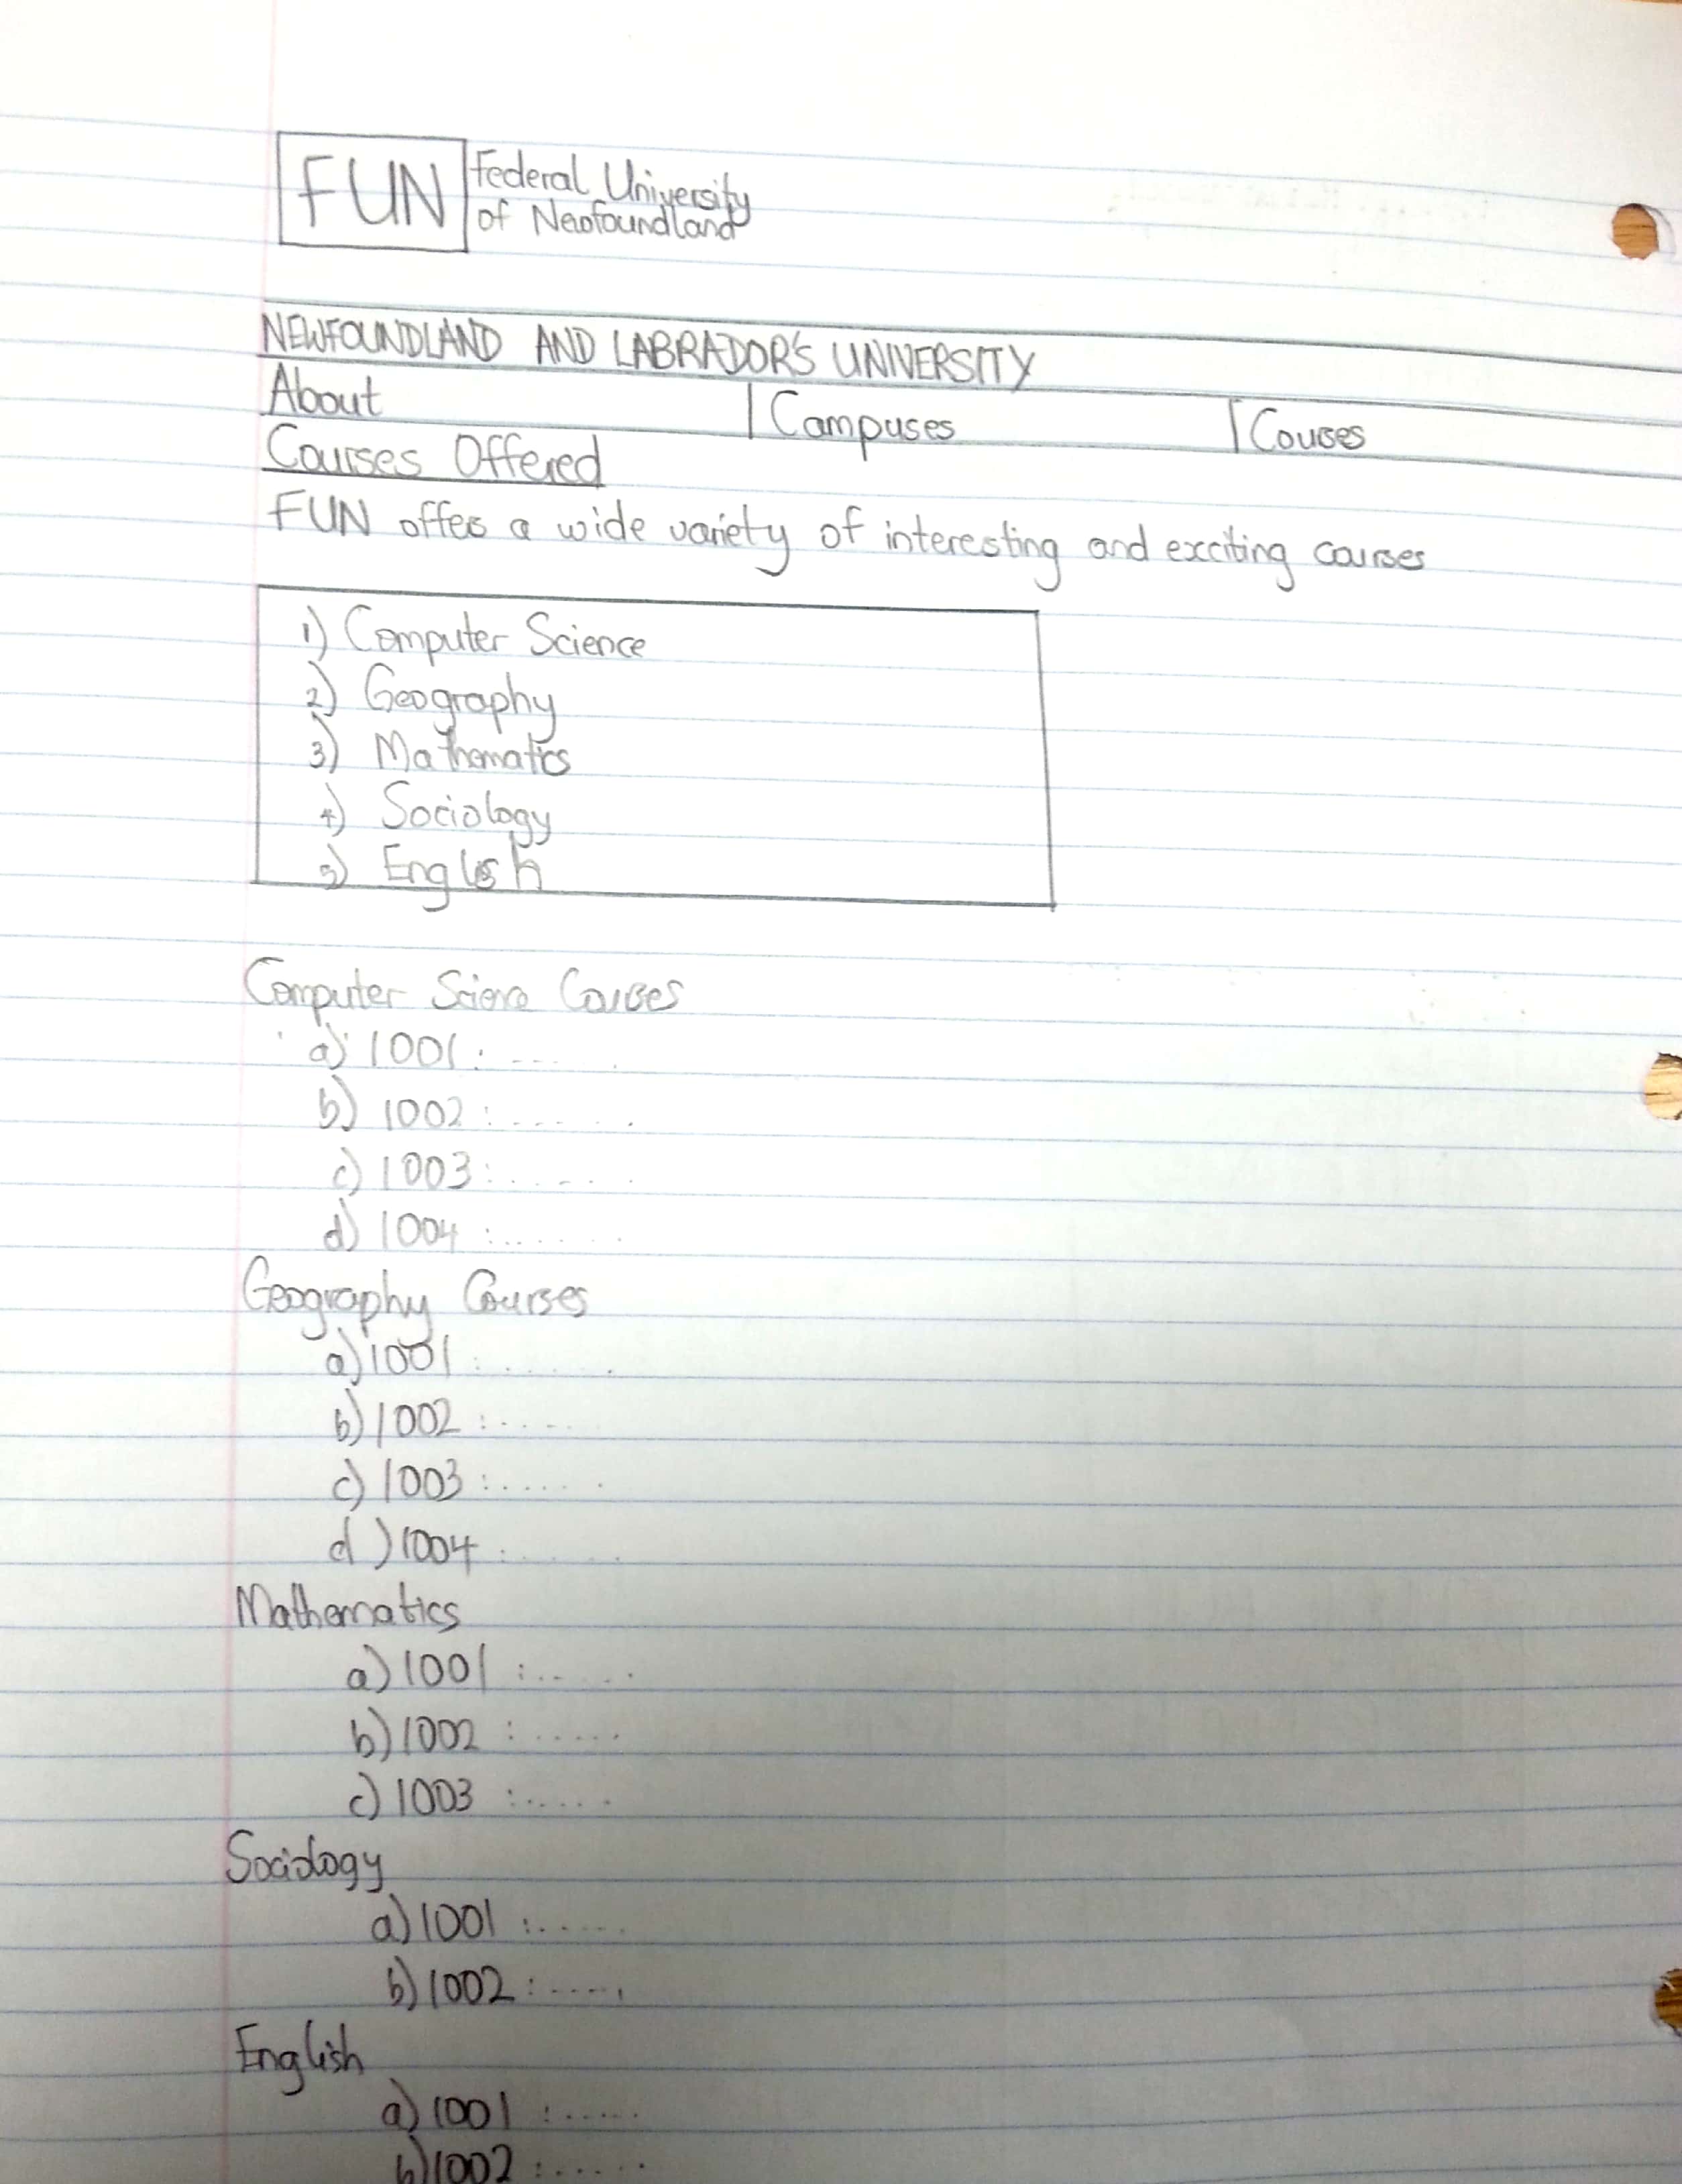 FUN
Federal University
of Newfoundland
NEWFOUNDLAND AND LABRADOR'S UNIVERSITY
About | Campuses | Courses
Courses Offered
FUN offers a wide variety of interesting and exciting courses
1) Computer Science
2) Geography
3) Mathematics
4) Sociology
5) English
Computer Science Courses
a) 1001: ....
b) 1002: ......
c) 1003: ......
d) 1004: ......
Geography Courses
a) 1001: ......
b) 1002: .....
c) 1003: ......
d) 1004: ......
Mathematics
a) 1001: .....
b) 1002: ......
c) 1003: ......
Sociology
a) 1001: ......
b) 1002: .....
English
a) 1001: ......
b) 1002: ......